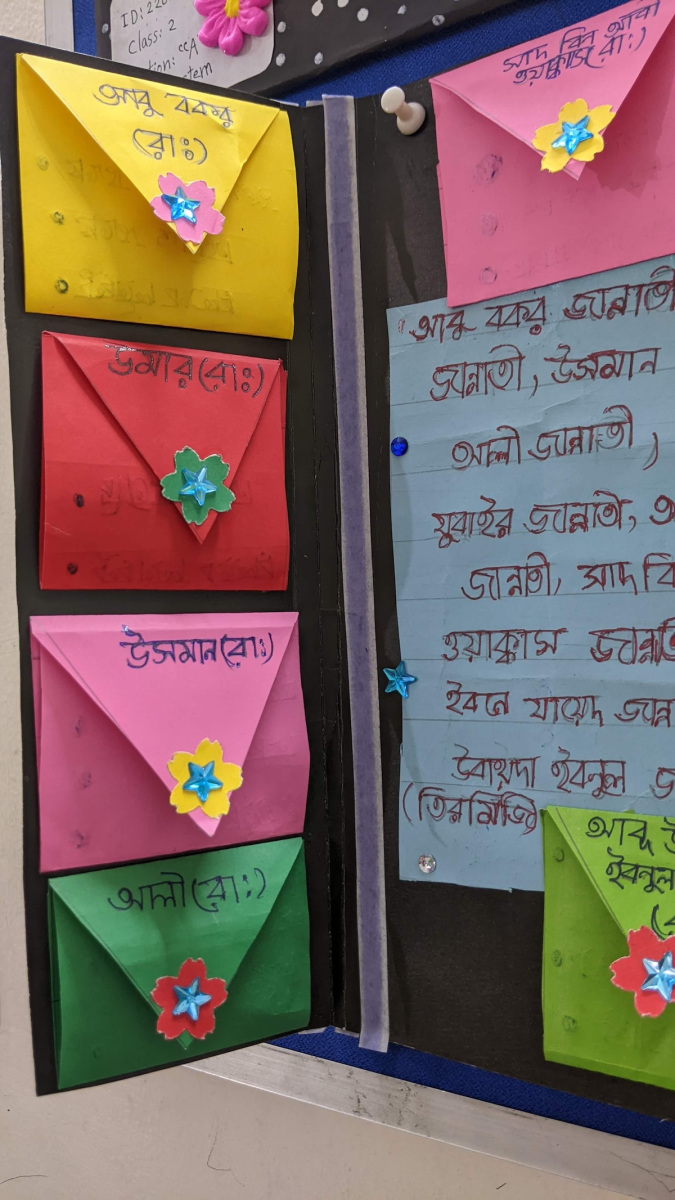 ID: 220
Class: 2
tion: "A
stem
আবু বকর
(রাঃ)
উমার (রাঃ)
উসমান (রাঃ)
আলী (রাঃ)
সাদ বিন আবী
ওয়াক্কাস (রাঃ)
আবু বকর জান্নাতী
জান্নাতী, উসমান
আলী জান্নাতী,
যুবাইর জান্নাতী,
জান্নাতী, সাদ বি
ওয়াক্কাস জান্নাতি
ইবনে যায়েদ জান্না
উবায়দা ইবনুল জ
(তিরমিজি)
আবু উ
ইবনুল